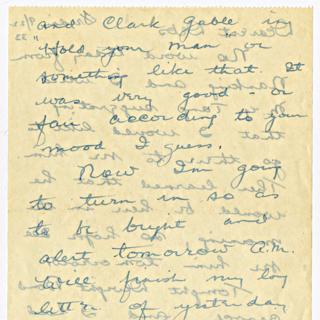 and Clark Gable in
"Hold your man" or
something like that. It
was very good or
fair according to your
mood I guess.
Now I'm going
to turn in so as
to be bright and
alert tomorrow A.M.
Will finish my long
letter of yesterday